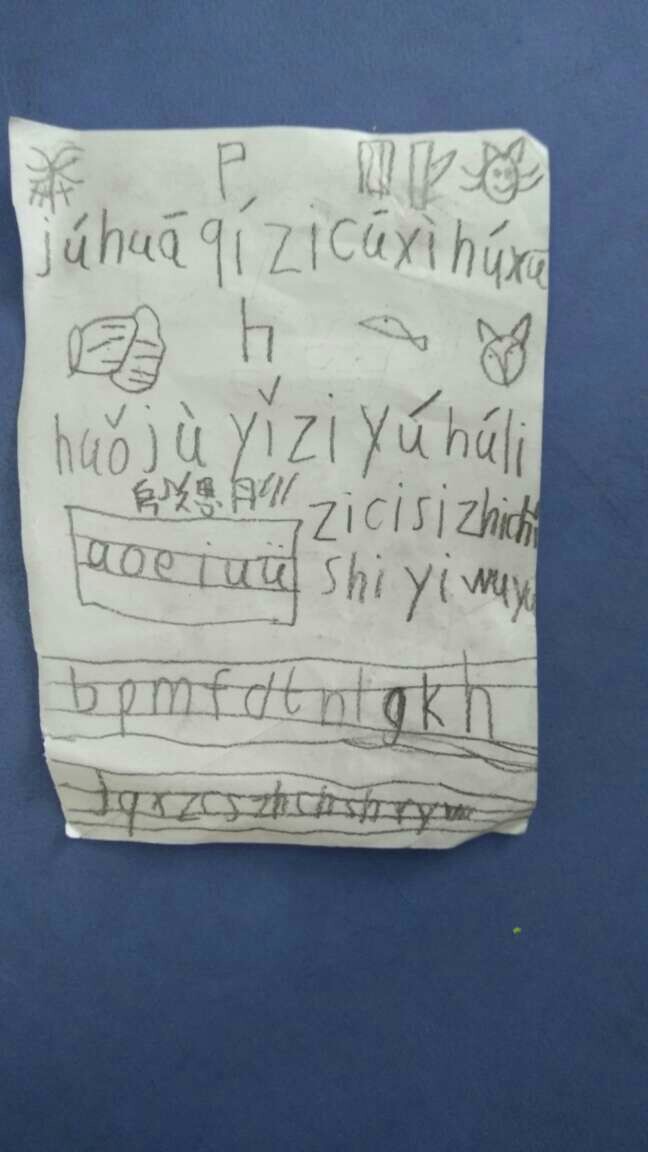 júhuā qízi cūxì húxū
huǒjù yǐzi yú húli
zi ci si zhi chi
aoeiuü shi yi wu yu
b p m f d t n l g k h
j q x z c s zh ch sh r y w